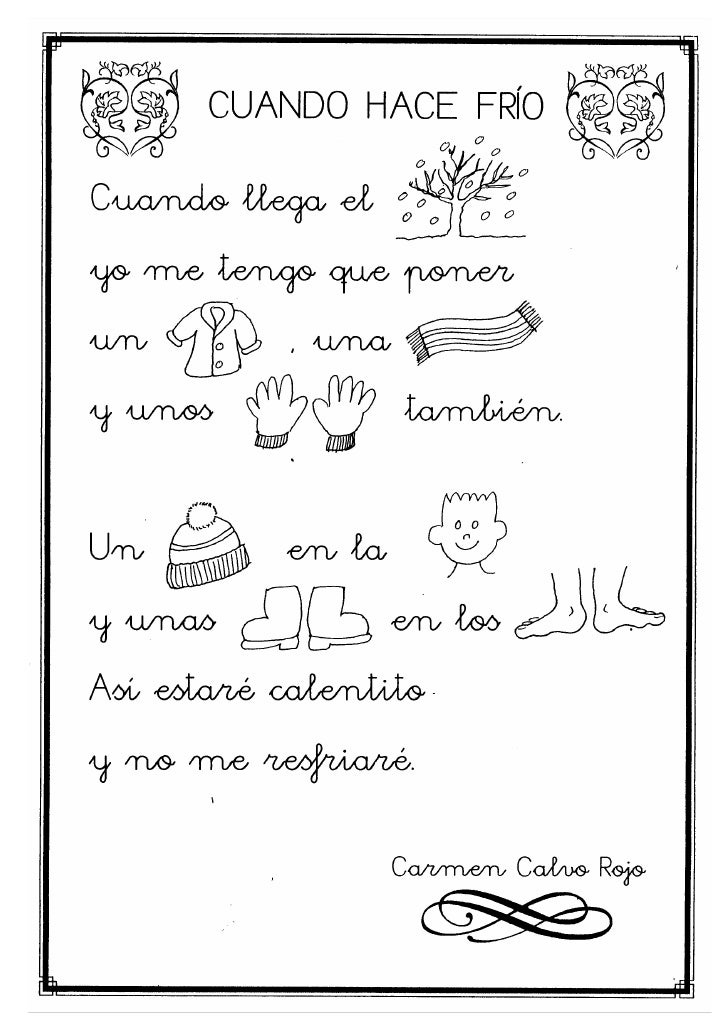 CUANDO HACE FRÍO
Cuando llega el
yo me tengo que poner
un , una
y unos también.
Un en la
y unas en los
Así estaré calentito
y no me resfriaré.
Carmen Calvo Rojo